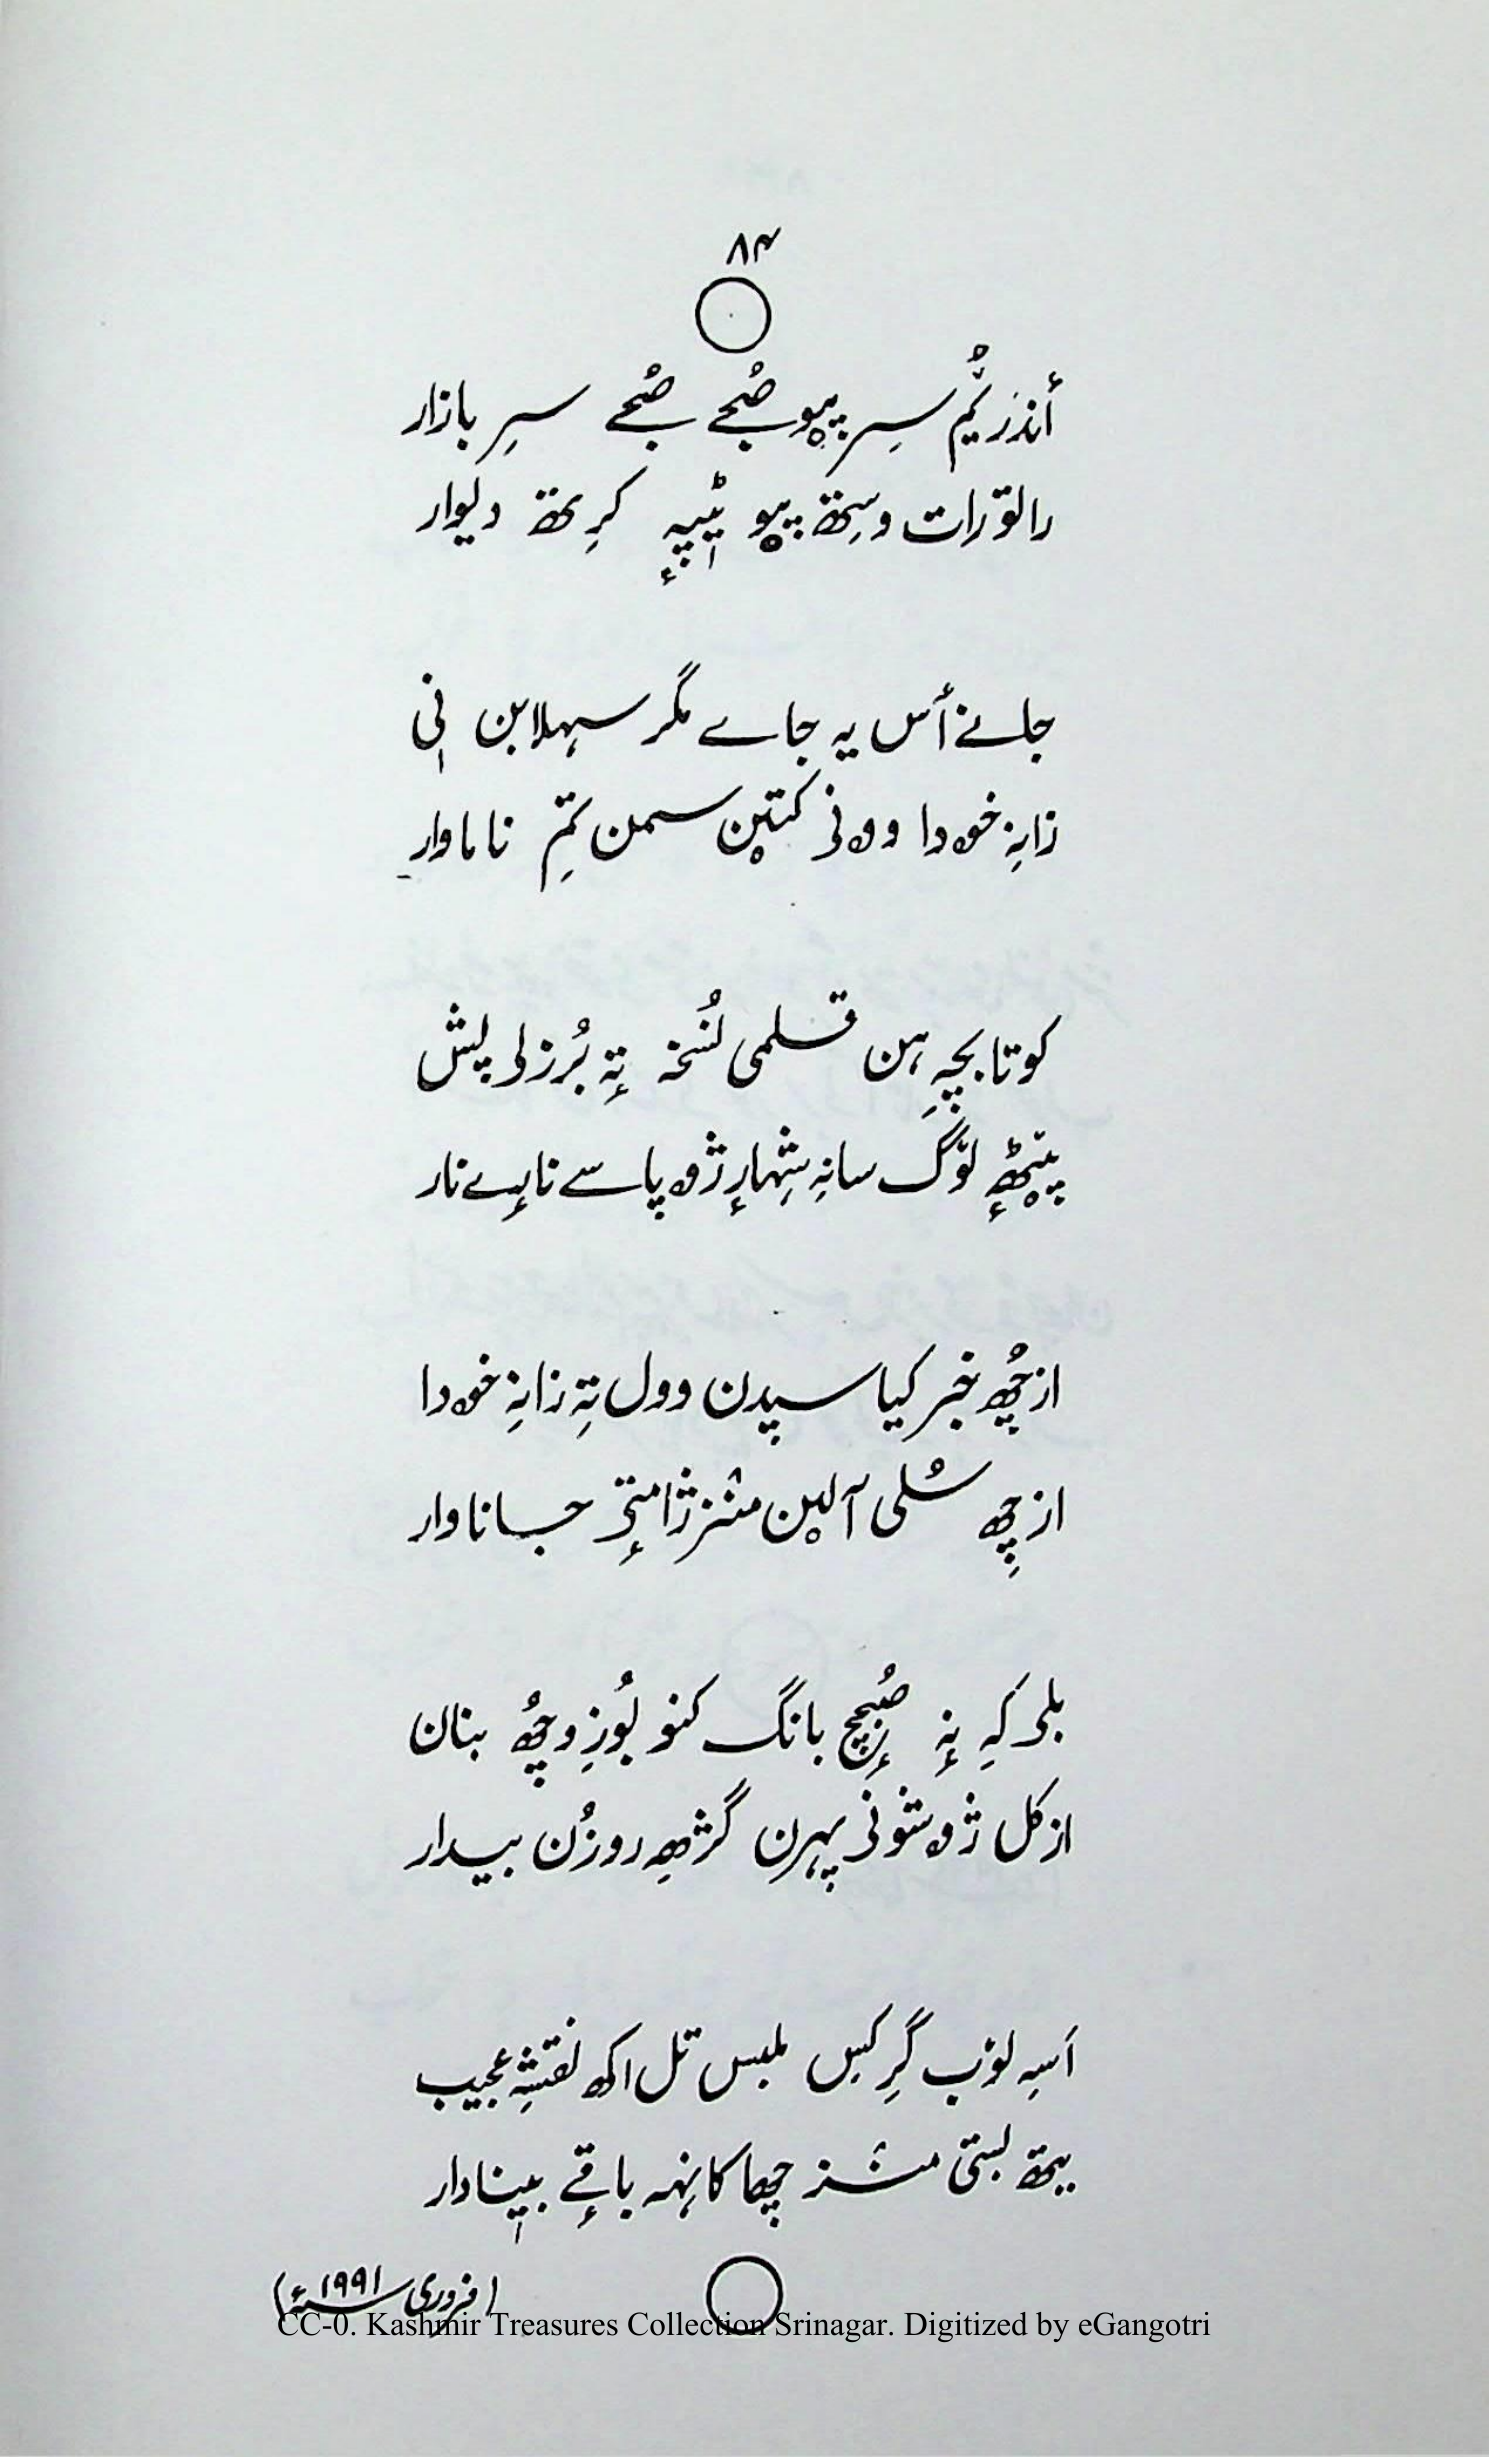 ۸۴
أندرُیُم سِر پیٚو صُبحے صُبحے سرِ بازار
راتو رات وسِتھ پیٚو ٹیٖپہٕ کرِتھ دیوار
جانے أس یہ جاے مگر سہلابن نٕی
زانہِ خۄدا وۄنی کتیٚن سمن تِم ناماوار
کوتا بچہِ ہن قلمی نُسخہ تہٕ بُرزلی پش
پیٚٹھٕ لوٚگ سانہِ شہارٕ ژۄپاسے نایے نار
از چھُ خبر کیا سپدن وول تہِ زانہِ خۄدا
از چھِ سُلی آلیٚن منز ژامٕتی جاناوار
بلہ کہِ یہٕ صُبحٕچ بانگ کنو بُوزِو چھُ بنان
ازکل ژۄشونی پہرن گژھہِ روزُن بیدار
اَسہِ لوٚب گرِ کِس ملبس تل اکھ نقشہِ عجیب
یتھ بستی منز چھا کانہہ باقٕے بیٖنادار
(فروری ۱۹۹۱ء)
CC-0. Kashmir Treasures Collection Srinagar. Digitized by eGangotri